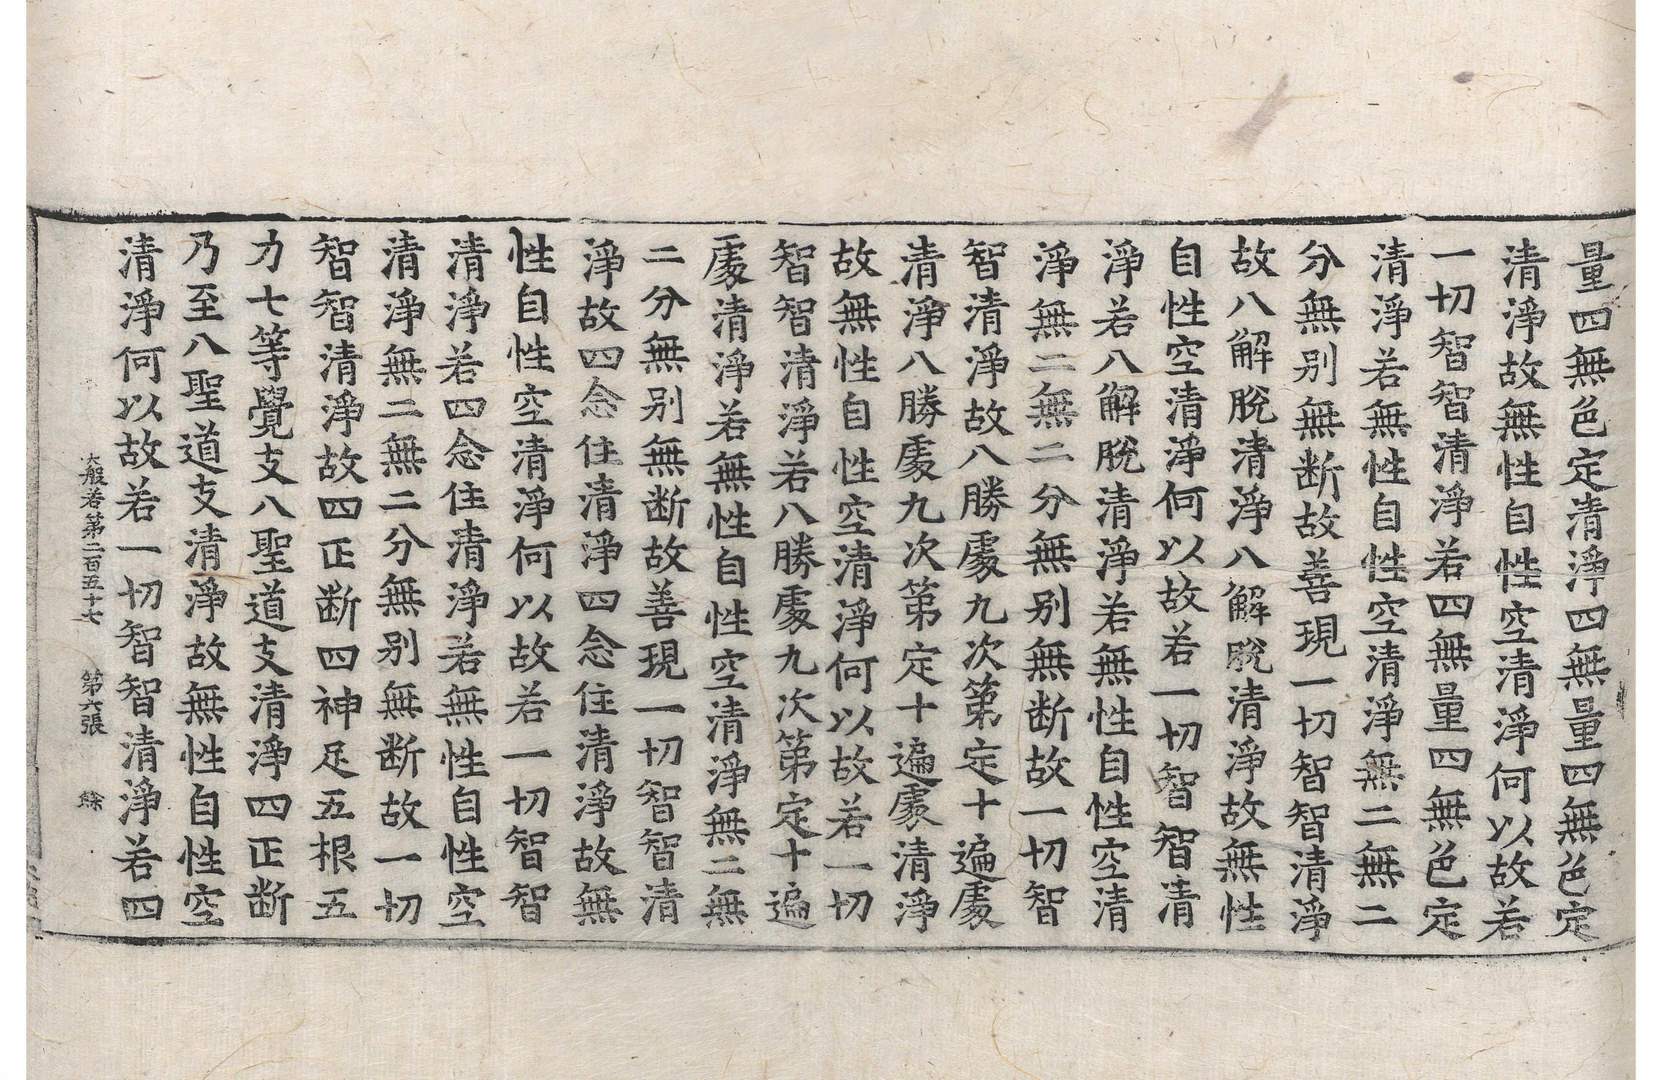 量四無色定清淨四無量四無色定
清淨故無性自性空清淨何以故若
一切智智清淨若四無量四無色定
清淨若無性自性空清淨無二無二
分無别無断故善現一切智智清淨
故八解脫清淨八解脫清淨故無性
自性空清淨何以故若一切智智清
淨若八解脫清淨若無性自性空清
淨無二無二分無别無断故一切智
智清淨故八勝處九次第定十遍處
清淨八勝處九次第定十遍處清淨
故無性自性空清淨何以故若一切
智智清淨若八勝處九次第定十遍
處清淨若無性自性空清淨無二無
二分無别無断故善現一切智智清
淨故四念住清淨四念住清淨故無
性自性空清淨何以故若一切智智
清淨若四念住清淨若無性自性空
清淨無二無二分無别無断故一切
智智清淨故四正断四神足五根五
力七等覺支八聖道支清淨四正断
乃至八聖道支清淨故無性自性空
清淨何以故若一切智智清淨若四
大般若第二百五十七 第六張 餘